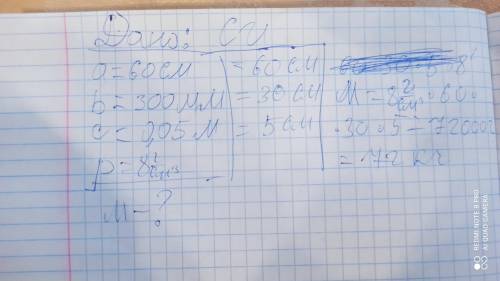 Дано: СИ
a = 60 см = 60 см
b = 300 мм = 30 см
c = 0,05 м = 5 см
p = 8 г/см³
м - ?
м = 8 г/см³ · 60 ·
· 30 · 5 = 72000 г
= 72 кг
REDMI NOTE 8 PRO
AI QUAD CAMERA